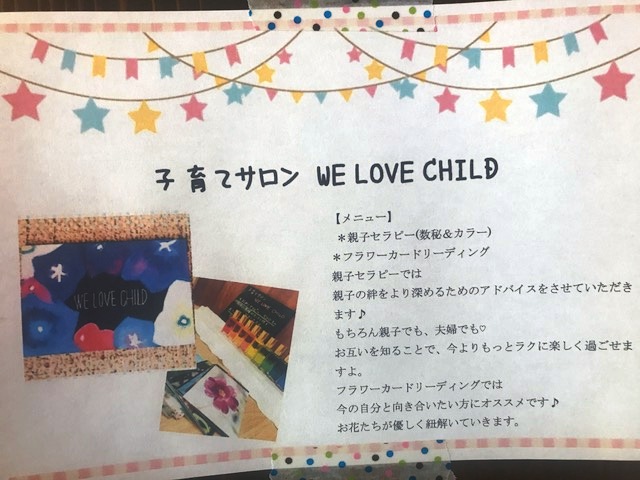 子育てサロン WE LOVE CHILD
WE LOVE CHILD
【メニュー】
＊親子セラピー(数秘＆カラー)
＊フラワーカードリーディング
親子セラピーでは
親子の絆をより深めるためのアドバイスをさせていただき
ます♪
もちろん親子でも、夫婦でも♡
お互いを知ることで、今よりもっとラクに楽しく過ごせま
すよ。
フラワーカードリーディングでは
今の自分と向き合いたい方にオススメです♪
お花たちが優しく紐解いていきます。